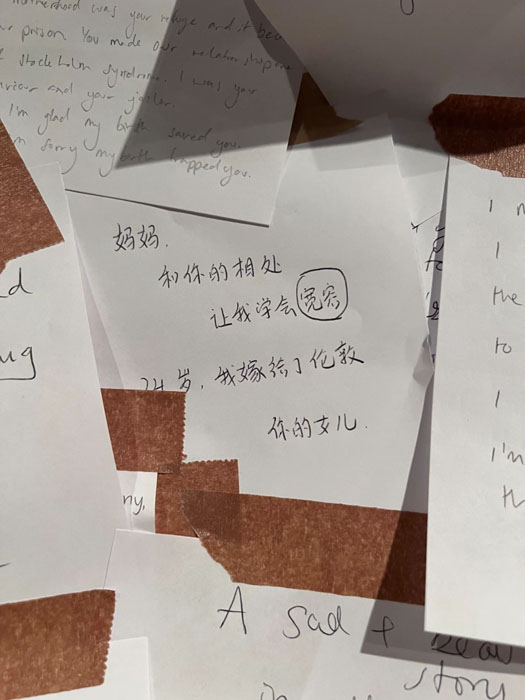 motherhood was your refuge and it bec
prison. You made our relationship
stockholm syndrome. I was your
aviour and your jailer.
I'm glad my birth saved you.
m sorry my birth trapped you.
妈妈,
和你的相处
让我学会宽容
24岁,我嫁给了伦敦
你的女儿.
d
ug
I
I
the
to
I
I'm
th
ny,
A sad + beau
story